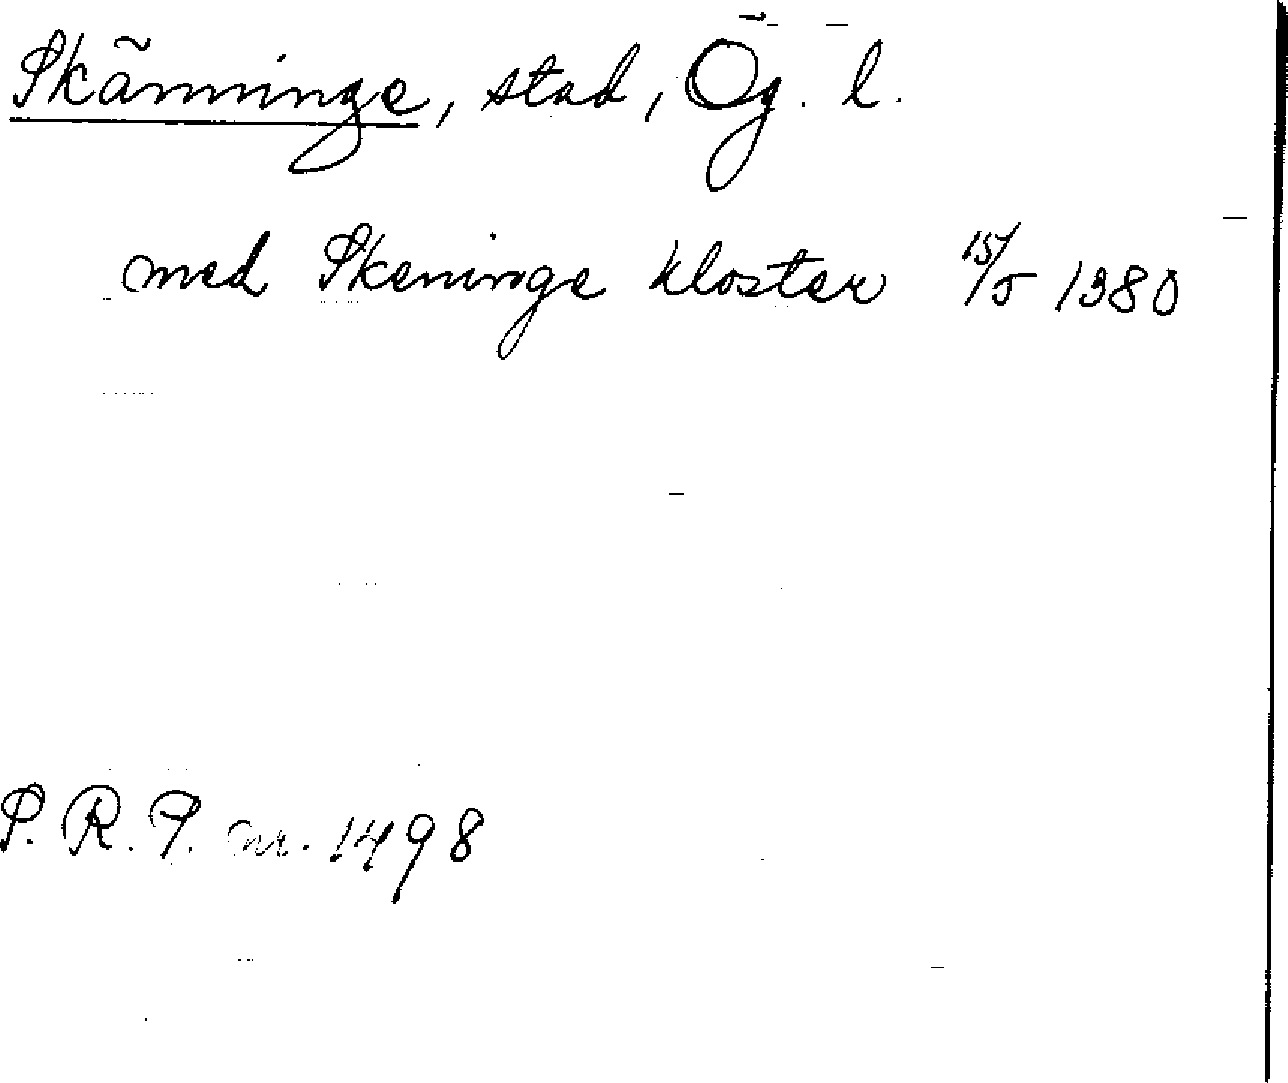 Skänninge, stad, Ög. l.
med Skeninge kloster 15/5 1380
S. R. P. nr. 1498